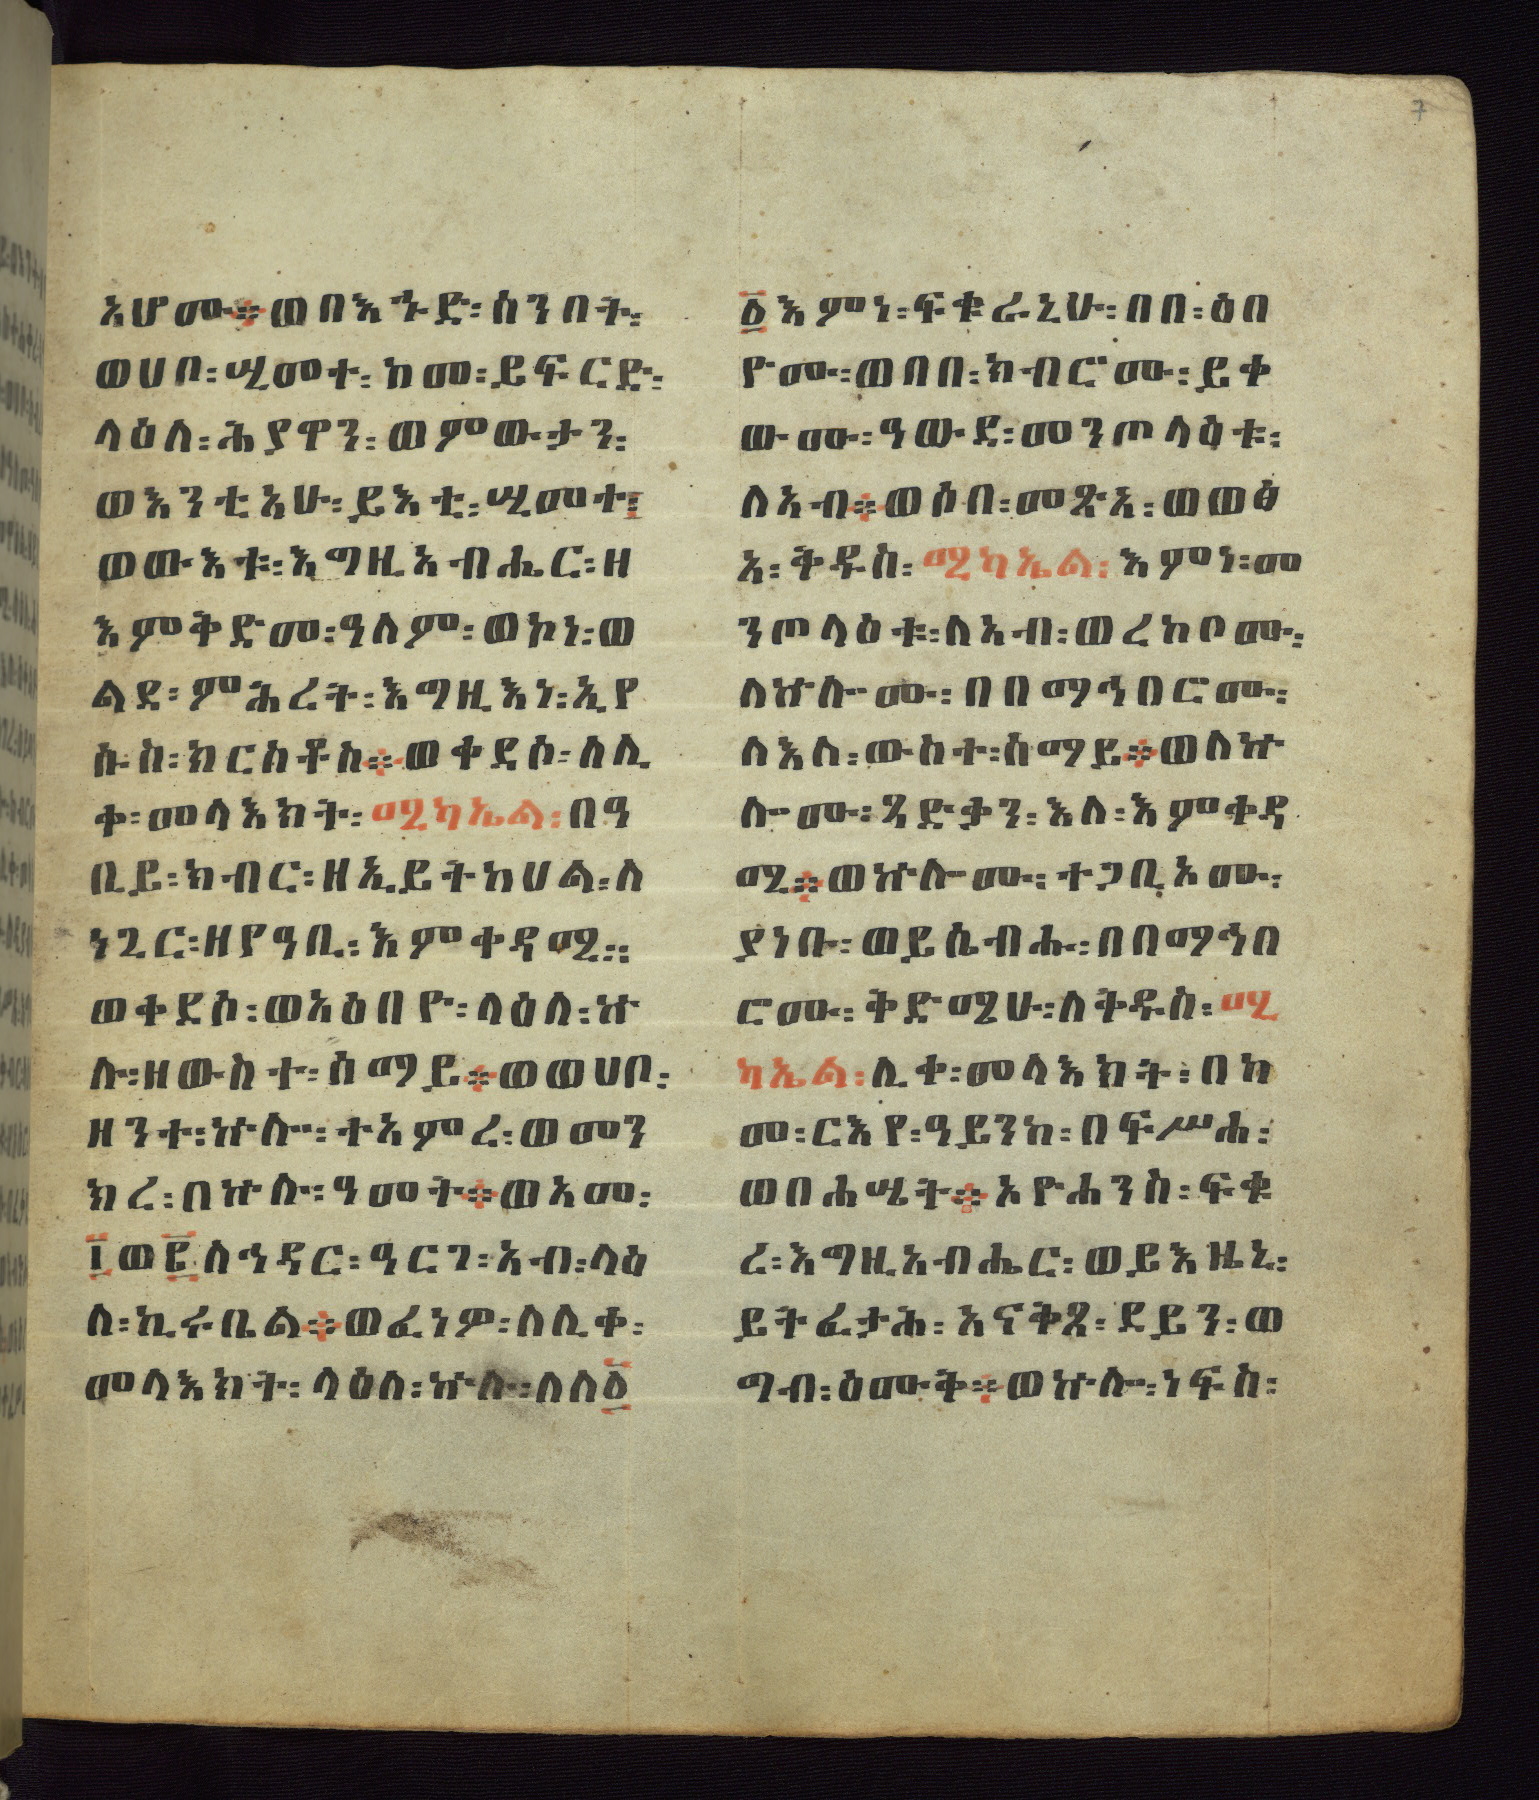 7
አሆሙ፨ወበእኁድ፡ሰንበት፡
ወሀቦ፡ሢመተ፡ከመ፡ይፍርድ፡
ላዕለ፡ሕያዋን፡ወምውታን፡
ወእንቲአሁ፡ይእቲ፡ሢመት፡
ወውእቱ፡እግዚአብሔር፡ዘ
እምቅድመ፡ዓለም፡ወኮነ፡ወ
ልደ፡ምሕረት፡እግዚእነ፡ኢየ
ሱስ፡ክርስቶስ፨ወቀደሶ፡ለሊ
ቀ፡መላእክት፡ሚካኤል፡በዓ
ቢይ፡ክብር፡ዘኢይትከሀል፡ለ
ነጊር፡ዘየዓቢ፡እምቀዳሚ፡፡
ወቀደሶ፡ወአዕበዮ፡ላዕለ፡ኵ
ሉ፡ዘውስተ፡ሰማይ፨ወወሀቦ፡
ዘንተ፡ኵሎ፡ተአምረ፡ወመን
ክረ፡በኵሉ፡ዓመት፨ወአመ፡
፲ወ፪ለኅዳር፡ዓርገ፡አብ፡ላዕ
ለ፡ኪሩቤል፨ወፈነዎ፡ለሊቀ፡
መላእክት፡ላዕለ፡ኵሉ፡ለለ፩
፩እምነ፡ፍቁራኒሁ፡በበ፡ዕበ
ዮሙ፡ወበበ፡ክብሮሙ፡ይቀ
ውሙ፡ዓውደ፡መንጦላዕቱ፡
ለአብ፨ወሶበ፡መጽአ፡ወወፅ
አ፡ቅዱስ፡ሚካኤል፡እምነ፡መ
ንጦላዕቱ፡ለአብ፡ወረከቦሙ፡
ለኵሎሙ፡በበማኅበሮሙ፡
ለእለ፡ውስተ፡ሰማይ፨ወለኵ
ሎሙ፡ጻድቃን፡እለ፡እምቀዳ
ሚ፨ወኵሎሙ፡ተጋቢአሙ፡
ያነቡ፡ወይሴብሑ፡በበማኅበ
ሮሙ፡ቅድሚሁ፡ለቅዱስ፡ሚ
ካኤል፡ሊቀ፡መላእክት፡በከ
መ፡ርእየ፡ዓይንከ፡በፍሥሐ፡
ወበሐሤት፨አዮሐንስ፡ፍቁ
ረ፡እግዚአብሔር፡ወይእዜኒ፡
ይትፈታሕ፡አናቅጸ፡ደይን፡ወ
ግብ፡ዕሙቅ፨ወኵሎ፡ነፍስ፡